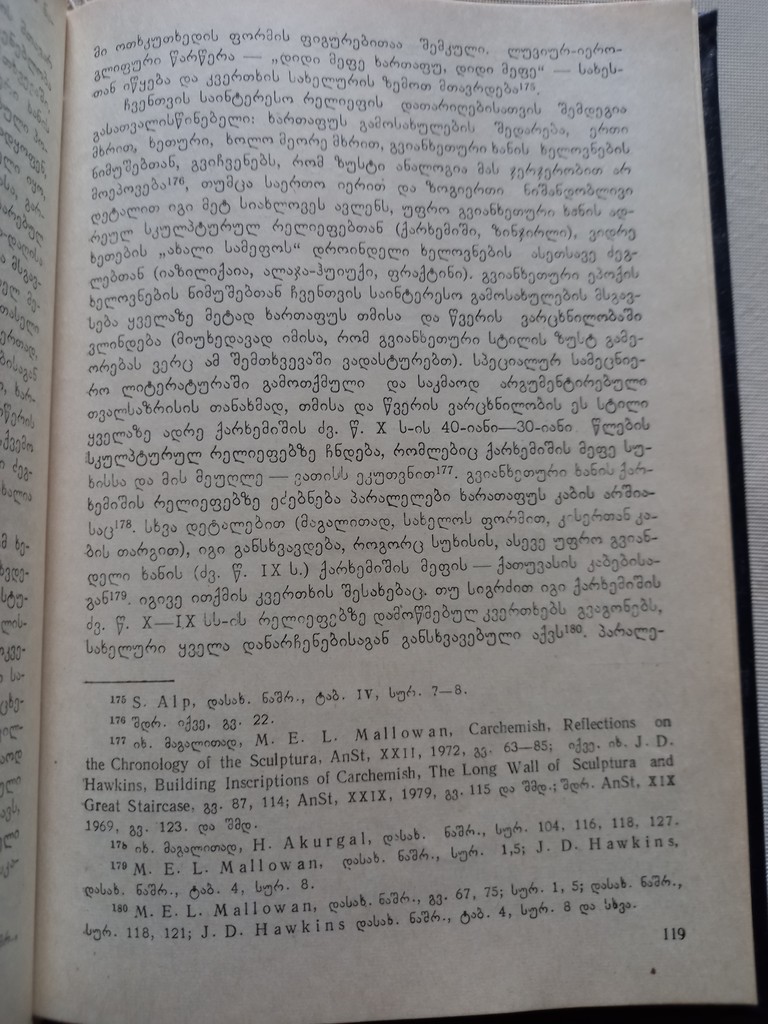 მი ოთხკუთხედის ფორმის ფიგურებითაა შემკული. ლუვიურ-იერო-
გლიფური წარწერა — „დიდი მეფე ხართაფუ, დიდი მეფე“ — სახეს-
თან იწყება და კვერთხის სახელურის ზემოთ მთავრდება¹⁷⁵.
ჩვენთვის საინტერესო რელიეფის დათარიღებისათვის შემდეგია
გასათვალისწინებელი: ხართაფუს გამოსახულების შედარება, ერთი
მხრით, ხეთური, ხოლო მეორე მხრით, გვიანხეთური ხანის ხელოვნების
ნიმუშებთან, გვიჩვენებს, რომ ზუსტი ანალოგია მას ჯერჯერობით არ
მოეპოვება¹⁷⁶, თუმცა საერთო იერით და ზოგიერთი ნიშანდობლივი
დეტალით იგი მეტ სიახლოვეს ავლენს, უფრო გვიანხეთური ხანის ად-
რეულ სკულპტურულ რელიეფებთან (ქარხემიში, ზინჯირლი), ვიდრე
ხეთების „ახალი სამეფოს“ დროინდელი ხელოვნების ასეთსავე ძეგ-
ლებთან (იაზილიქაია, ალაჯა-ჰუიუქი, ფრაქტინი). გვიანხეთური ეპოქის
ხელოვნების ნიმუშებთან ჩვენთვის საინტერესო გამოსახულების მსგავ-
სება ყველაზე მეტად ხართაფუს თმისა და წვერის ვარცხნილობაში
ვლინდება (მიუხედავად იმისა, რომ გვიანხეთური სტილის ზუსტ გამე-
ორებას ვერც ამ შემთხვევაში ვადასტურებთ). სპეციალურ სამეცნიე-
რო ლიტერატურაში გამოთქმული და საკმაოდ არგუმენტირებული
თვალსაზრისის თანახმად, თმისა და წვერის ვარცხნილობის ეს სტილი
ყველაზე ადრე ქარხემიშის ძვ. წ. X ს-ის 40-იანი—30-იანი წლების
სკულპტურულ რელიეფებზე ჩნდება, რომლებიც ქარხემიშის მეფე სუ-
ხისსა და მის მეუღლე — ვათისს ეკუთვნით¹⁷⁷. გვიანხეთური ხანის ქარ-
ხემიშის რელიეფებზე ეძებნება პარალელები ხარათაფუს კაბის არშია-
საც¹⁷⁸. სხვა დეტალებით (მაგალითად, სახელოს ფორმით, კისერთან კა-
ბის თარგით), იგი განსხვავდება, როგორც სუხისის, ასევე უფრო გვიან-
დელი ხანის (ძვ. წ. IX ს.) ქარხემიშის მეფის — ქათუვასის კაბებისა-
გან¹⁷⁹. იგივე ითქმის კვერთხის შესახებაც. თუ სიგრძით იგი ქარხემიშის
ძვ. წ. X—IX სს-ის რელიეფებზე დამოწმებულ კვერთხებს გვაგონებს,
სახელური ყველა დანარჩენებისაგან განსხვავებული აქვს¹⁸⁰. პარალე-
¹⁷⁵ S. Alp, დასახ. ნაშრ., ტაბ. IV, სურ. 7—8.
¹⁷⁶ შდრ. იქვე, გვ. 22.
¹⁷⁷ იხ. მაგალითად, M. E. L. Mallowan, Carchemish, Reflections on
the Chronology of the Sculptura, AnSt, XXII, 1972, გვ. 63—85; იქვე. იხ. J. D.
Hawkins, Building Inscriptions of Carchemish, The Long Wall of Sculptura and
Great Staircase, გვ. 87, 114; AnSt, XXIX, 1979, გვ. 115 და შმდ.; შდრ. AnSt, XIX
1969, გვ. 123. და შმდ.
¹⁷⁸ იხ. მაგალითად, H. Akurgal, დასახ. ნაშრ., სურ. 104, 116, 118, 127.
¹⁷⁹ M. E. L. Mallowan, დასახ. ნაშრ., სურ. 1,5; J. D. Hawkins,
დასახ. ნაშრ., ტაბ. 4, სურ. 8.
¹⁸⁰ M. E. L. Mallowan, დასახ. ნაშრ., გვ. 67, 75; სურ. 1, 5; დასახ. ნაშრ.,
სურ. 118, 121; J. D. Hawkins დასახ. ნაშრ., ტაბ. 4, სურ. 8 და სხვა.
119